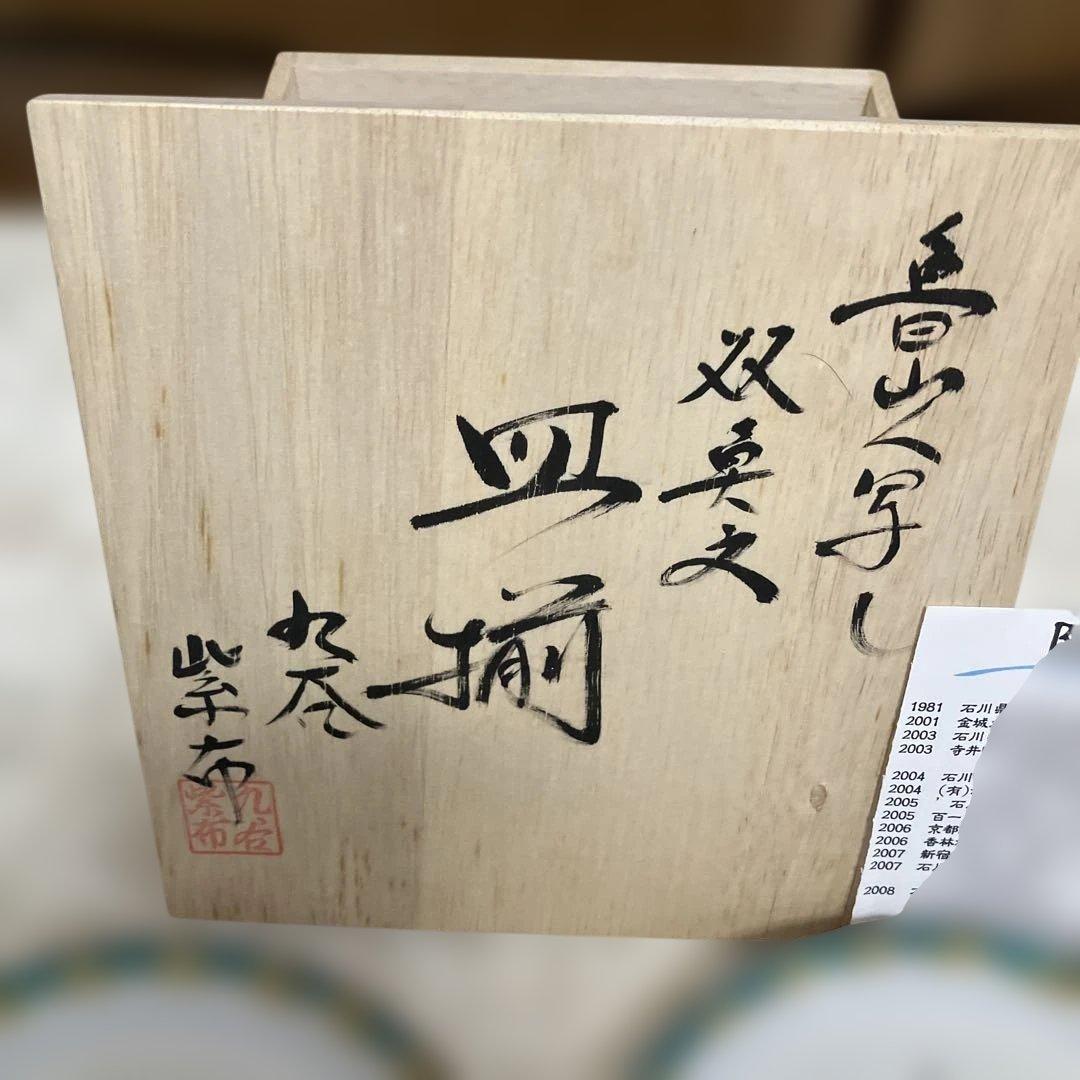 魯山人写し
双魚文
皿揃
九谷
紫布
九谷
紫布
1981 石川県
2001 金城
2003 石川
2003 寺井
2004 石川
2004 (有)
2005 石
2005 百一
2006 京都
2006 香林
2007 新宿
2007 石川
2008